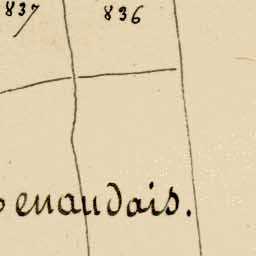 837
836
enaudais.